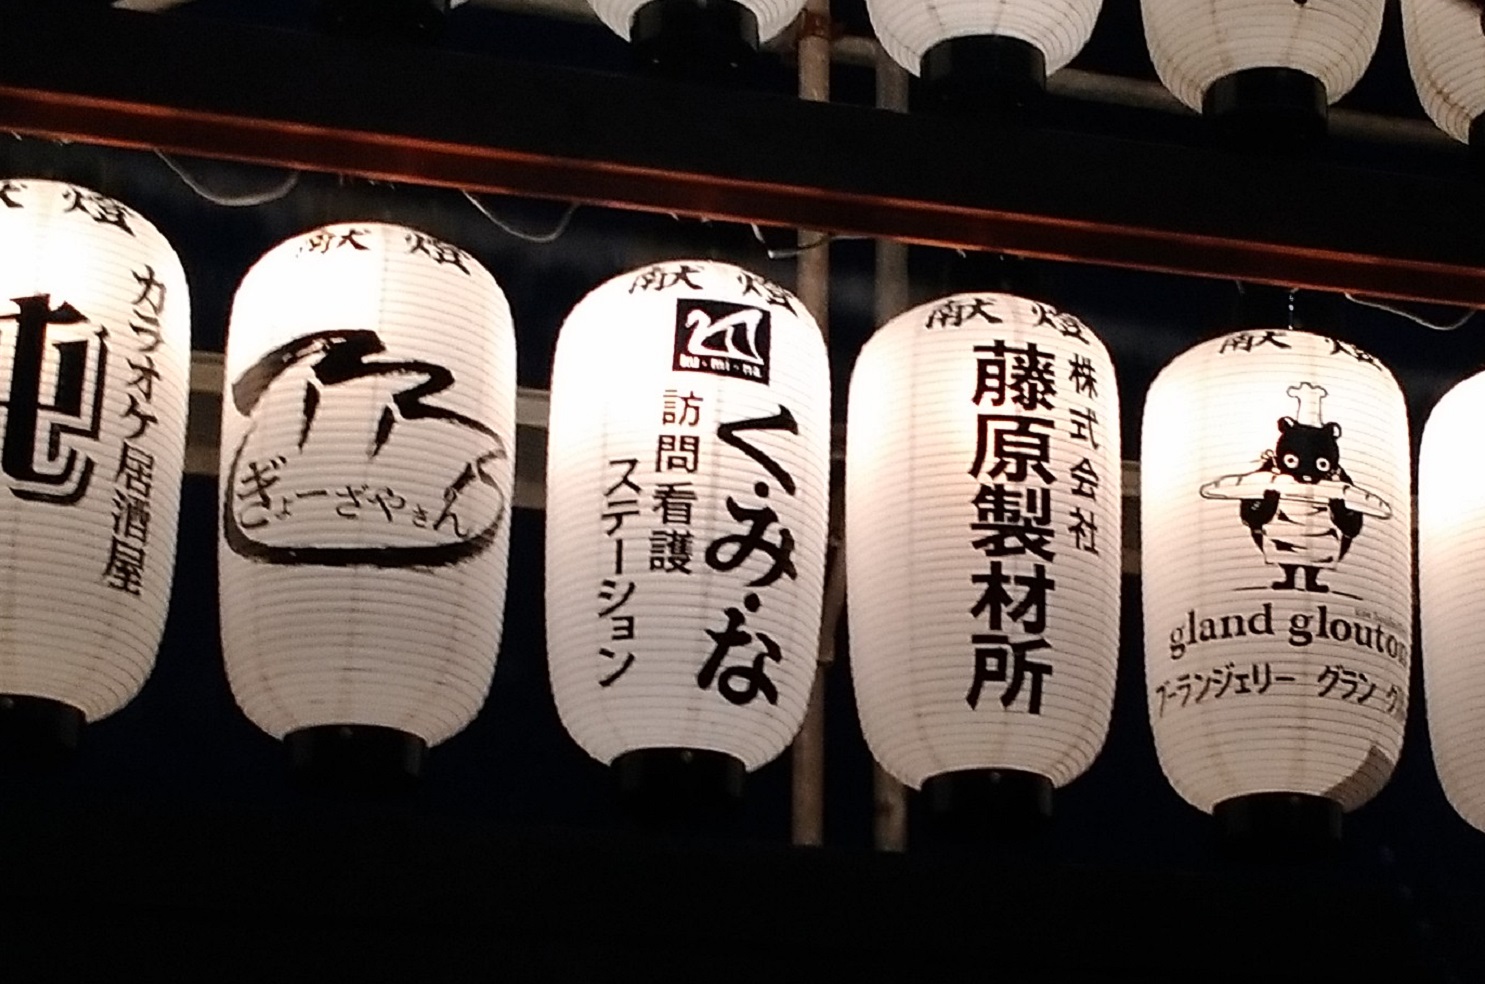 献燈
カラオケ居酒屋
献燈
ぎょーざやさん
献燈
ku・mi・na
く・み・な
訪問看護
ステーション
献燈
株式会社
藤原製材所
献燈
gland glouton
ブーランジェリー グラン